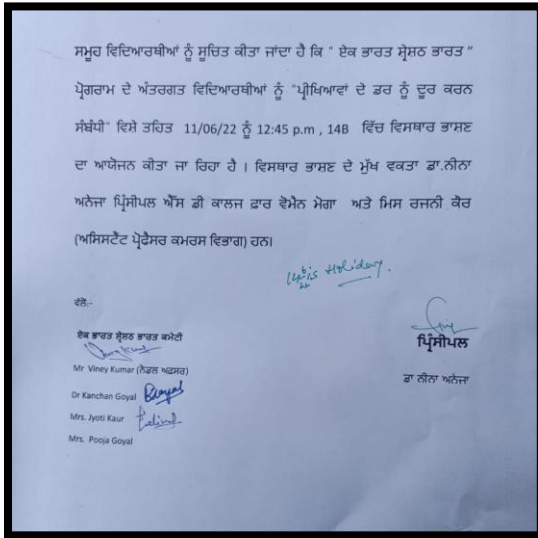 ਸਮੂਹ ਵਿਦਿਆਰਥੀਆਂ ਨੂੰ ਸੂਚਿਤ ਕੀਤਾ ਜਾਂਦਾ ਹੈ ਕਿ " ਏਕ ਭਾਰਤ ਸ੍ਰੇਸ਼ਠ ਭਾਰਤ "
ਪ੍ਰੋਗਰਾਮ ਦੇ ਅੰਤਰਗਤ ਵਿਦਿਆਰਥੀਆਂ ਨੂੰ "ਪ੍ਰੀਖਿਆਵਾਂ ਦੇ ਡਰ ਨੂੰ ਦੂਰ ਕਰਨ
ਸੰਬੰਧੀ" ਵਿਸ਼ੇ ਤਹਿਤ 11/06/22 ਨੂੰ 12:45 p.m , 14B ਵਿੱਚ ਵਿਸਥਾਰ ਭਾਸ਼ਣ
ਦਾ ਆਯੋਜਨ ਕੀਤਾ ਜਾ ਰਿਹਾ ਹੈ । ਵਿਸਥਾਰ ਭਾਸ਼ਣ ਦੇ ਮੁੱਖ ਵਕਤਾ ਡਾ.ਨੀਨਾ
ਅਨੇਜਾ ਪ੍ਰਿੰਸੀਪਲ ਐੱਸ ਡੀ ਕਾਲਜ ਫ਼ਾਰ ਵੋਮੈਨ ਮੋਗਾ ਅਤੇ ਮਿਸ ਰਜਨੀ ਕੌਰ
(ਅਸਿਸਟੈਂਟ ਪ੍ਰੋਫੈਸਰ ਕਮਰਸ ਵਿਭਾਗ) ਹਨ।
is Holiday.
ਵੱਲੋਂ:-
ਏਕ ਭਾਰਤ ਸ੍ਰੇਸ਼ਠ ਭਾਰਤ ਕਮੇਟੀ
Mr Viney Kumar (ਨੋਡਲ ਅਫ਼ਸਰ)
Dr Kanchan Goyal
Mrs. Jyoti Kaur
Mrs. Pooja Goyal
ਪ੍ਰਿੰਸੀਪਲ
ਡਾ ਨੀਨਾ ਅਨੇਜਾ